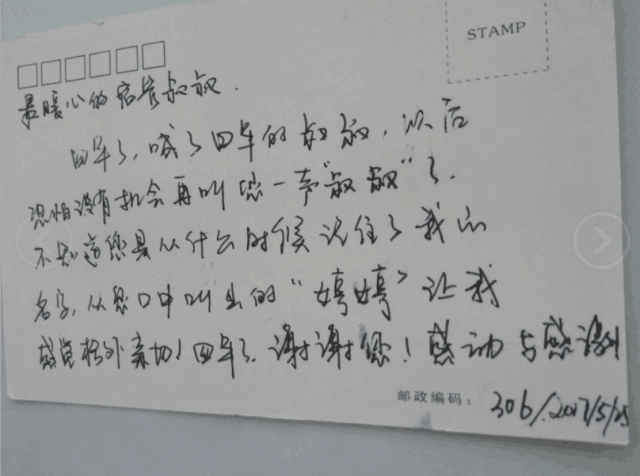 STAMP
最暖心的宿管叔叔.
四年了,喊了四年的叔叔,以后
恐怕没有机会再叫您一声“叔叔”了.
不知道您是从什么时候记住了我的
名字,从您口中叫出的“娉娉”让我
感觉格外亲切!四年了,谢谢您!感动与感谢!
邮政编码:
306/2017/5/25